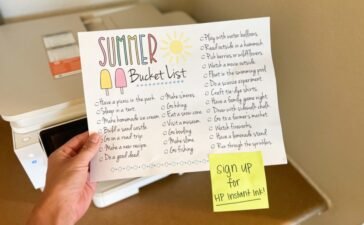 SUMMER
Bucket List
Have a picnic in the park.
Sleep in a tent.
Make homemade ice cream.
Build a sand castle.
Go on a road trip.
Make a new recipe.
Do a good deed.
Make s'mores.
Go hiking.
Eat a snow cone.
Visit a museum.
Go bowling.
Make slime.
Go fishing.
Play with water balloons.
Read outside in a hammock.
Pick berries or wildflowers.
Watch a movie outside.
Float in the swimming pool.
Do a science experiment.
Craft tie-dye shirts.
Have a family game night.
Draw with sidewalk chalk.
Go to a farmer's market.
Watch fireworks.
Have a lemonade stand.
Run through the sprinklers.
Sign up
for
HP Instant Ink!